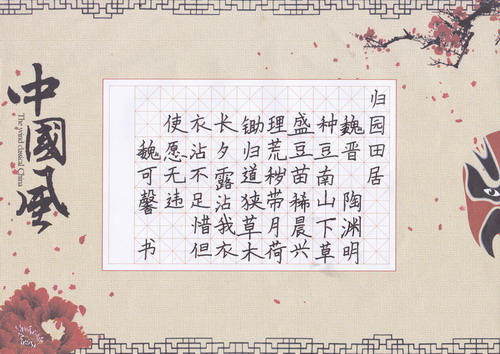 归园田居
魏晋 陶渊明
种豆南山下草
盛豆苗稀晨兴
理荒秽带月荷
锄归道狭草木
长夕露沾我衣
衣沾不足惜但
使愿无违
魏可馨 书
中國風
The wind classical China